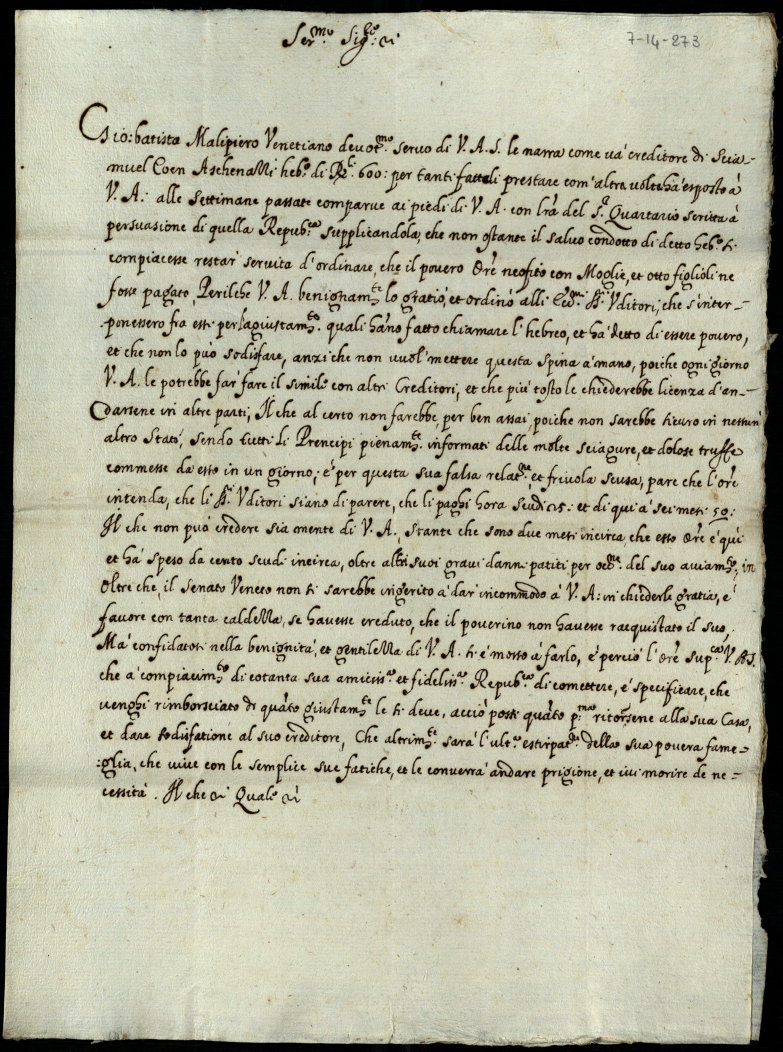 Ser.mo Sig.re &
7-14-273
Gio: batista Malipiero Venetiano deuot.mo seruo di V. A. S. le narra come uà creditore di Scia-
muel Coen Aschenazzi heb.o di 600: per tanti fattoli prestare com'altre uolte hà esposto à
V. A.: alle settimane passate comparue ai piedi di V. A. con lr̃a del S.r Quartario scritta à
persuasione di quella Repub.ca supplicandola, che non ostante il saluo condotto di detto heb.o si
compiacesse restar seruita d'ordinare, che il pouero Or̃e neofito con Moglie, et otto figlioli ne
fosse pagato, Perilche V. A. benignam.te lo gratiò, et ordinò alli SS.ri Vditori, che s'inter-
ponessero fra essi per l'agiustam.to quali hãno fatto chiamare l'hebreo, et hà detto di essere pouero,
et che non lo può sodisfare, anzi che non uuol mettere questa spina a' mano, poiche ogni giorno
V. A. le potrebbe far fare il simile con altri Creditori, et che più tosto le chiederebbe licenza d'an-
darsene in altre parti, Il che al certo non farebbe, per ben assai, poiche non sarebbe sicuro in nessun
altro Stato, sendo tutti li Prencipi pienam.te informati delle molte sciagure, et dolose truffe
commesse da esso in un giorno; é per questa sua falsa relat.ne, et friuola scusa, pare che l'Or̃e
intenda, che li SS.ri Vditori siano di parere, che li paghi hora scudi 25: et di qui à sei mesi 50:
Il che non può credere sia mente di V. A., stante che sono due mesi incirca che esso Or̃e é quì
et hà speso da cento scudi incirca, oltre altri suoi graui danni patiti per del suo auiam.to, in
oltre che, il Senato Veneto non si sarebbe ingerito à dar incommodo à V. A: in chiederle gratia, é
fauore con tanta caldezza, se hauesse creduto, che il pouerino non hauesse racquistato il suo,
Mà confidatosi nella benignità, et gentilezza di V. A. si é mosso à farlo, é perciò l'Or̃e sup.ca V. A. S.
che à compiacim.to di cotanta sua amiciss.a et fideliss.a Repub.ca di comettere, é specificare, che
uenghi rimborsciato di quãto giustam.te le si deue, acciò possi quãto p.ma ritorsene alla sua Casa,
et dare sodisfatione al suo creditore, Che altrim.te sarà l'ult.a estirpat.ne della sua pouera fame-
:glia, che uiue con le semplice sue fatiche, et le conuerrà andare prigione, et iui morire de ne-
cessità. Il che & Quale &